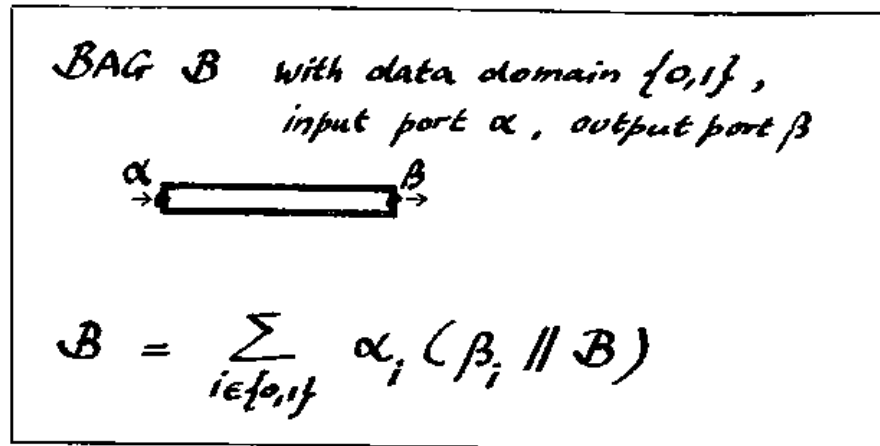 BAG B with data domain {0,1},
input port α, output port β
α β
B = ∑ α_i (β_i // B)
i∈{0,1}